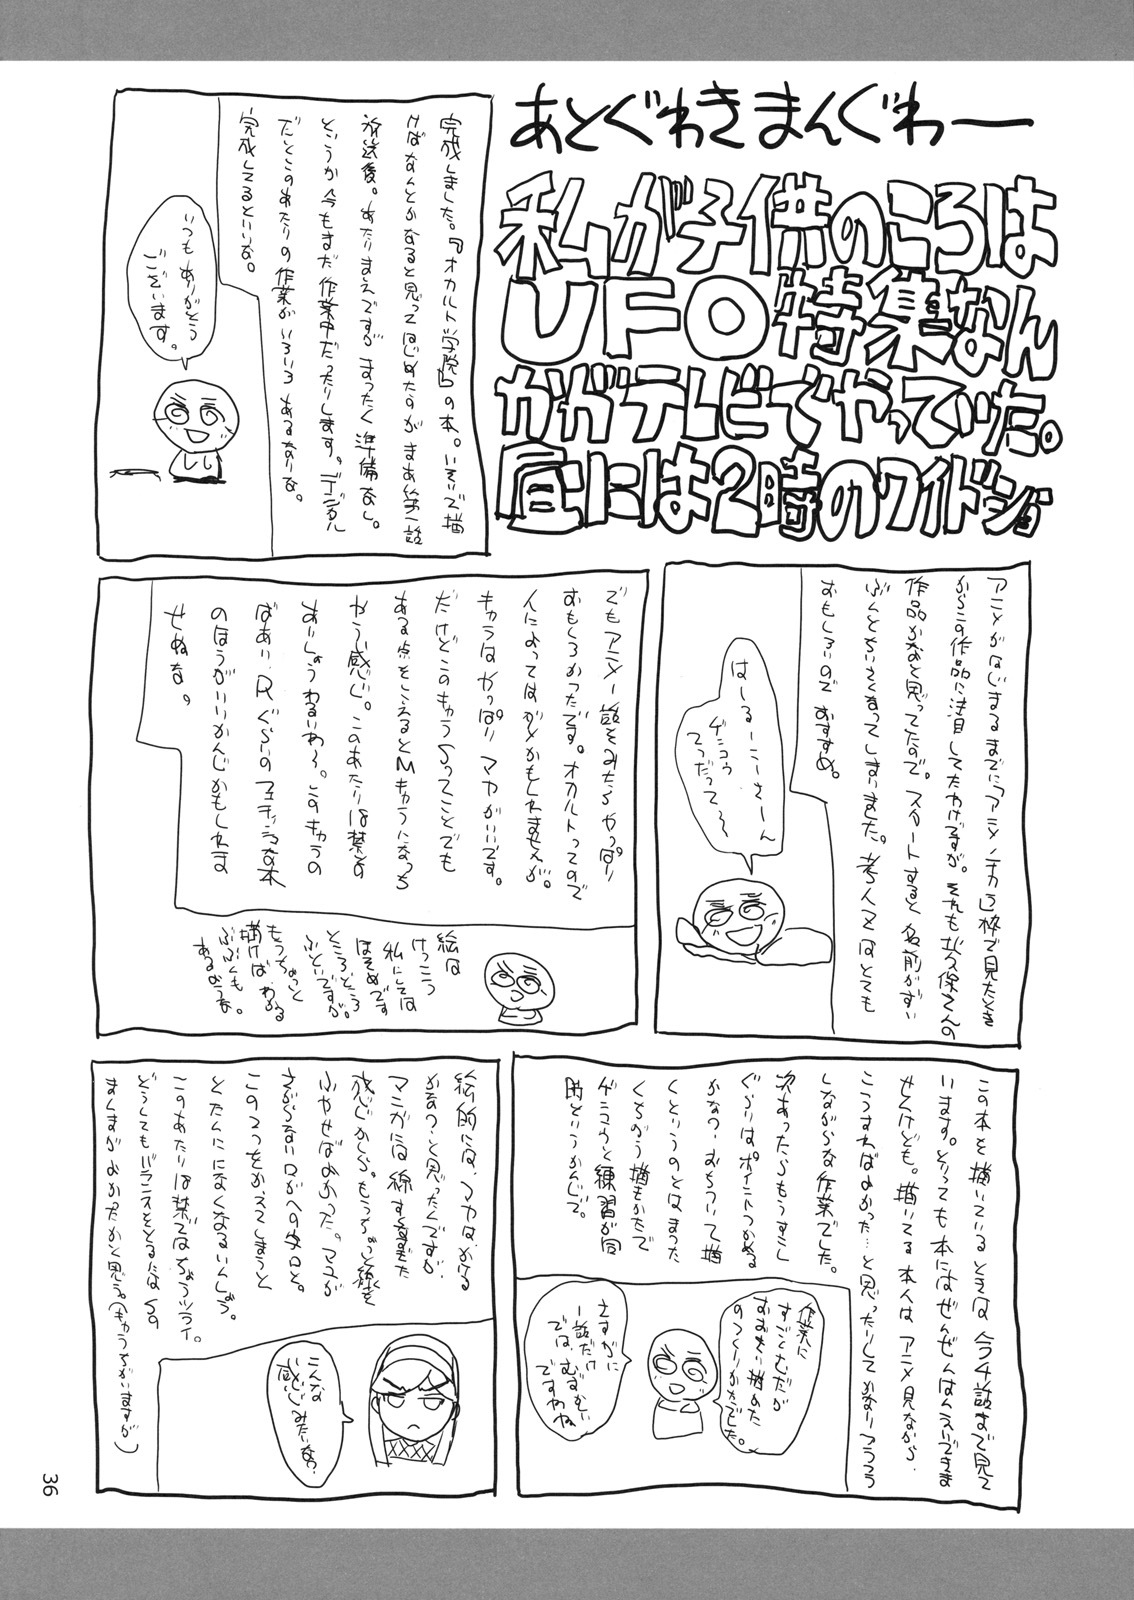 あとぐわきまんぐわー
私が子供のころは
UFO特集なん
かがテレビでやっていた。
昼には2時のワイドショ
完成しました。『オカルト学院』の本。いそいで描
けばなんとかなると思ってはじめたのがまあ第一話
放送後。あたりまえですがまったく準備なし。
というか今もまだ作業中だったりします。デジタル
だとこのあたりの作業がいろいろあるなりな。
完成してるといいな。
いつもありがとう
ございます。
アニメがはじまるまでに「アニメノチカラ」枠で見たとき
からこの作品に注目してたわけですが。それも
作品かなと思ってたので。スタートすると名前がずい
ぶんと小さくなってしまいました。
おもしろいのでおすすめ。
はーるーこーさーん
ゲンコウ
てつだって〜
でもアニメ一話をみたらやっぱり
おもしろかったです。オカルトってので
人によってはダメかもしれませんが。
キャラはやっぱりマヤがいいです。
だけどこのキャラSってことでも
ある点をこえるとMキャラになっち
ゃう感じ。このあたりは禁書の
あいしょうわるいわ〜。このキャラの
ばあい、Rぐらいのフェチックな本
のほうがいいかんじかもしれま
せぬな。
絵は
けっこう
私にしては
ほそめです
ところどころ
ふといですが。
もうちょっと
描けばわかる
ぶぶんも
あるような。
この本を描いているときは今4話まで見て
います。とっても本にはぜんぜんはんえいできま
せんけども。描いてる本人はアニメ見ながら、
こうすればよかった…と思ったりしてかなりフラフラ
しながらな作業でした。
次あったらもうすこし
ぐらいはポイントつかめる
かなっ。おちついて描
くというのとはまった
くちがう描きかたで
ゲンコウと練習が同
時というかんじで。
作業に
すごくむだが
おおい描めた
のつくりかたでした。
さすがに
一話だけ
ではむずかしい
ですわね
絵的には、マヤは、かける
かなっ、と思ったんですが
マンガには線すくなすぎた
感じかしら。もうちょっと線を
ふやせばよかった。マユが
さがらない、口がへの字口と。
この2つをかえてしまうと
とたんにになくなるいんしょう。
このあたりは禁書ではちょうツライ。
どうしてもバランスをとるには
まんまがよかったかと思う。(もうちがいますが)
こんな
感じみたいな?
36